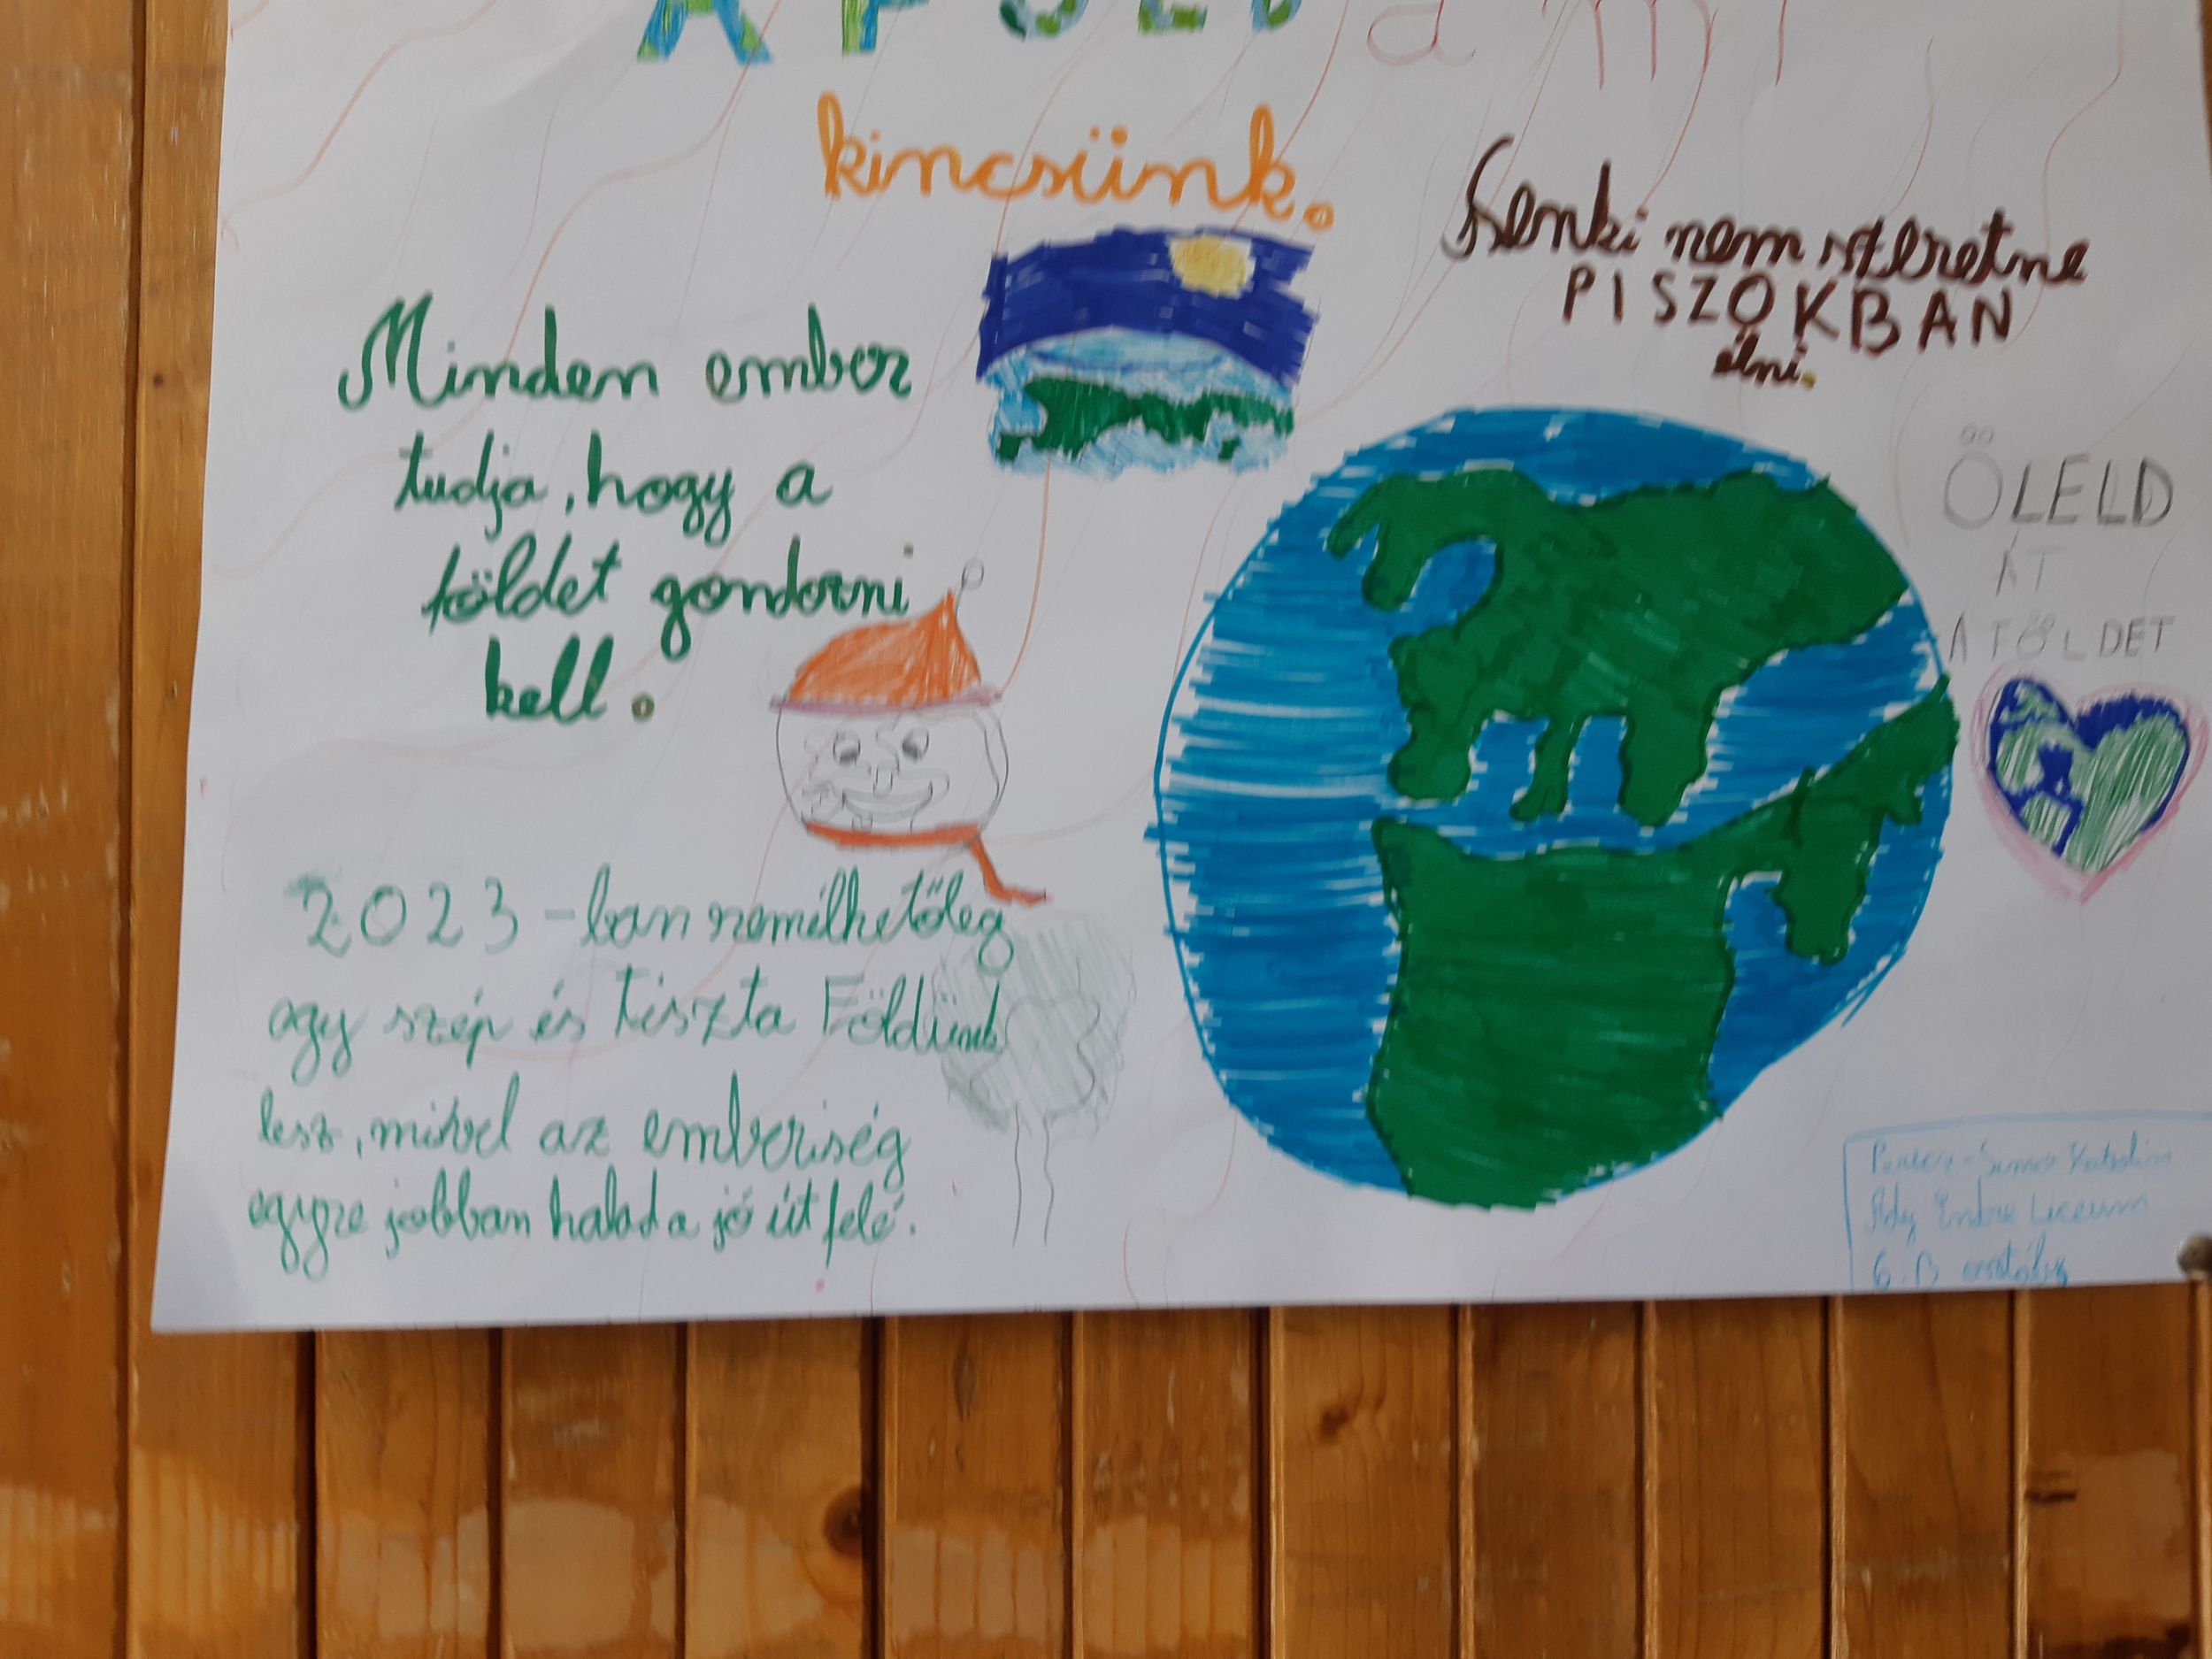 A FÖLD a mi
kincsünk.
Senki nem szeretne
PISZOKBAN
élni.
Minden ember
tudja, hogy a
földet gondozni
kell.
ÖLELD
ÁT
A FÖLDET
2023-ban remélhetőleg
egy szép és Tiszta Földünk
lesz, mivel az emberiség
egyre jobban halad a jó út felé.
Katalin
Ady Endre Liceum
6. B osztály